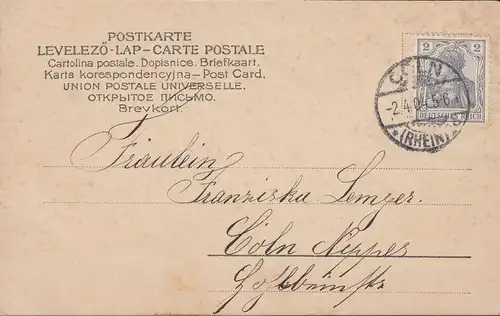 POSTKARTE
LEVELEZŐ-LAP–CARTE POSTALE
Cartolina postale. Dopisnice. Briefkaart.
Karta korespondencyjna–Post Card.
UNION POSTALE UNIVERSELLE.
ОТКРЫТОЕ ПИСЬМО.
Brevkort.
2 2
DEUTSCHES REICH
CÖLN
2.4.04. 5-6
(RHEIN)
Fräulein
Franziska Lemger
Cöln Nippes